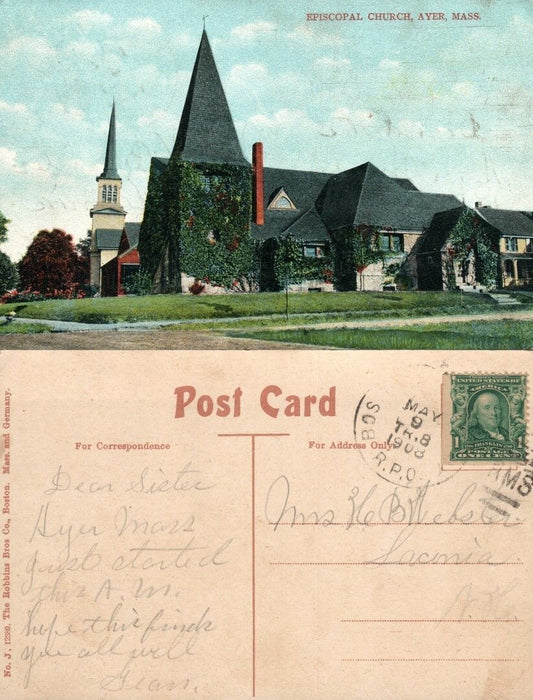 EPISCOPAL CHURCH, AYER, MASS.
Post Card
For Correspondence
For Address Only
No. J. 12999. The Robbins Bros Co., Boston. Mass. and Germany.
BOS
R.P.O.
MAY
9
TR.8
1908
RMS
UNITED STATES OF AMERICA
1 FRANKLIN 1
POSTAGE
ONE CENT
Dear Sister
Ayer Mass
Just started
this A.M.
hope this finds
you all well
Mrs H B Webster
N. H.